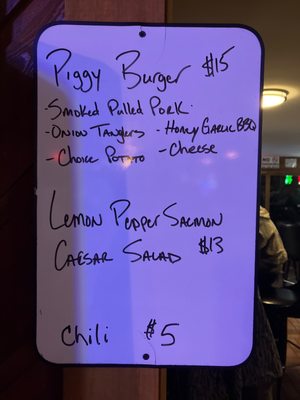 Piggy Burger $15
- Smoked Pulled Pork
- Onion Tanglers - Honey Garlic BBQ
- Choice Potato - Cheese
Lemon Pepper Salmon
Caesar Salad $13
Chili $5